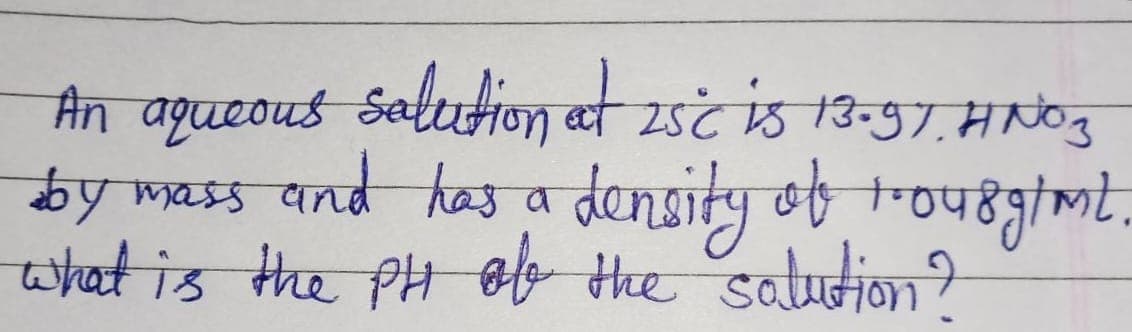 An aqueous solution at 25°c is 13.9%. HNO3
by mass and has a density of 1.048g/mL.
what is the PH of the solution?